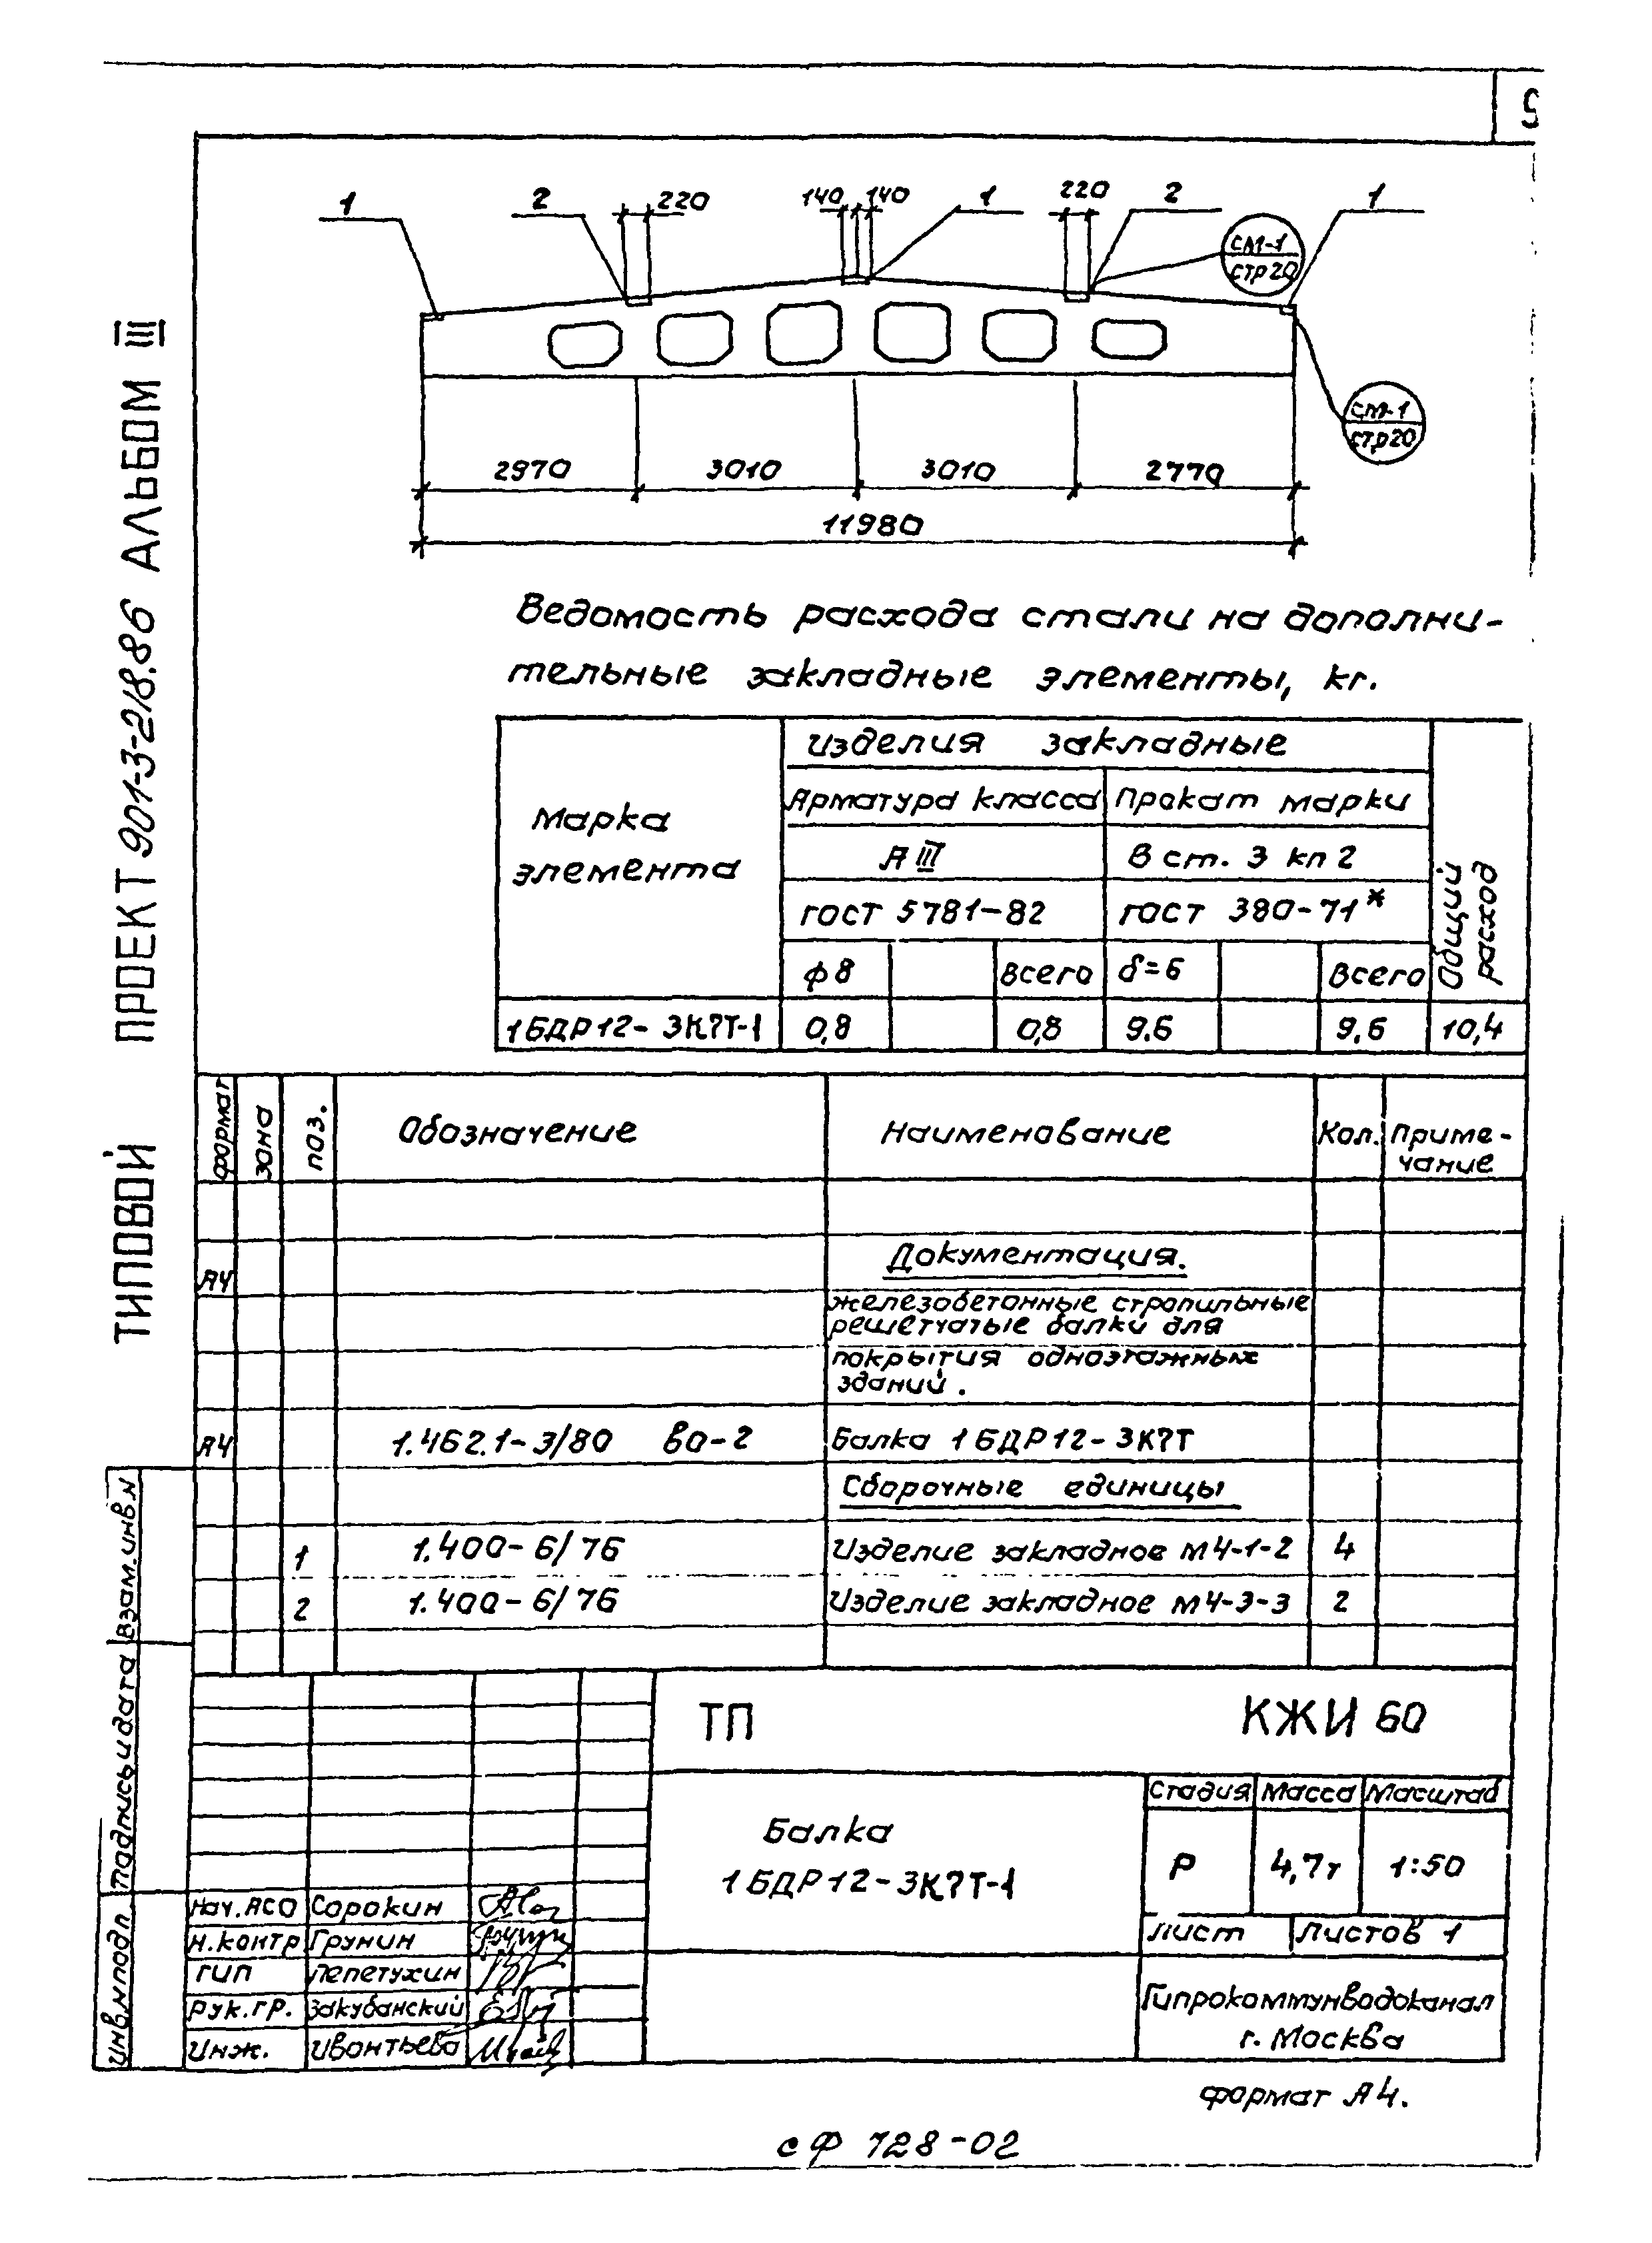 5
1
2
220
140
140
1
220
2
1
СМ-1
СТР 20
СМ-1
СТР 20
2970
3010
3010
2770
11980
Ведомость расхода стали на дополни-
тельные закладные элементы, кг.
Марка
элемента
Изделия закладные
Арматура класса
Прокат марки
А III
В ст. 3 кп 2
ГОСТ 5781-82
ГОСТ 380-71*
Общий
расход
ф8
Всего
δ=6
Всего
1БДР12-3К7Т-1
0,8
0,8
9.6
9.6
10,4
формат
зона
поз.
Обозначение
Наименование
Кол.
Приме-
чание
Документация.
А4
железобетонные стропильные
решетчатые балки для
покрытия одноэтажных
зданий.
А4
1.462.1-3/80 во-2
Балка 1БДР12-3К7Т
Сборочные единицы
1
1.400-6/76
Изделие закладное М4-1-2
4
2
1.400-6/76
Изделие закладное М4-3-3
2
ТП
КЖИ 60
Балка
1БДР12-3К7Т-1
Стадия
Масса
Масштаб
Р
4,7т
1:50
Лист
Листов 1
Гипрокоммунводоканал
г. Москва
Нач.АСО
Сорокин
Н.контр
Грунин
ГИП
Пепетухин
Рук.гр.
Закубанский
Инж.
Ивонтьева
формат А4.
сф 728-02
ТИПОВОЙ ПРОЕКТ 901-3-218.86 АЛЬБОМ III
Взам.инв.N
Подпись и дата
Инв.N подл